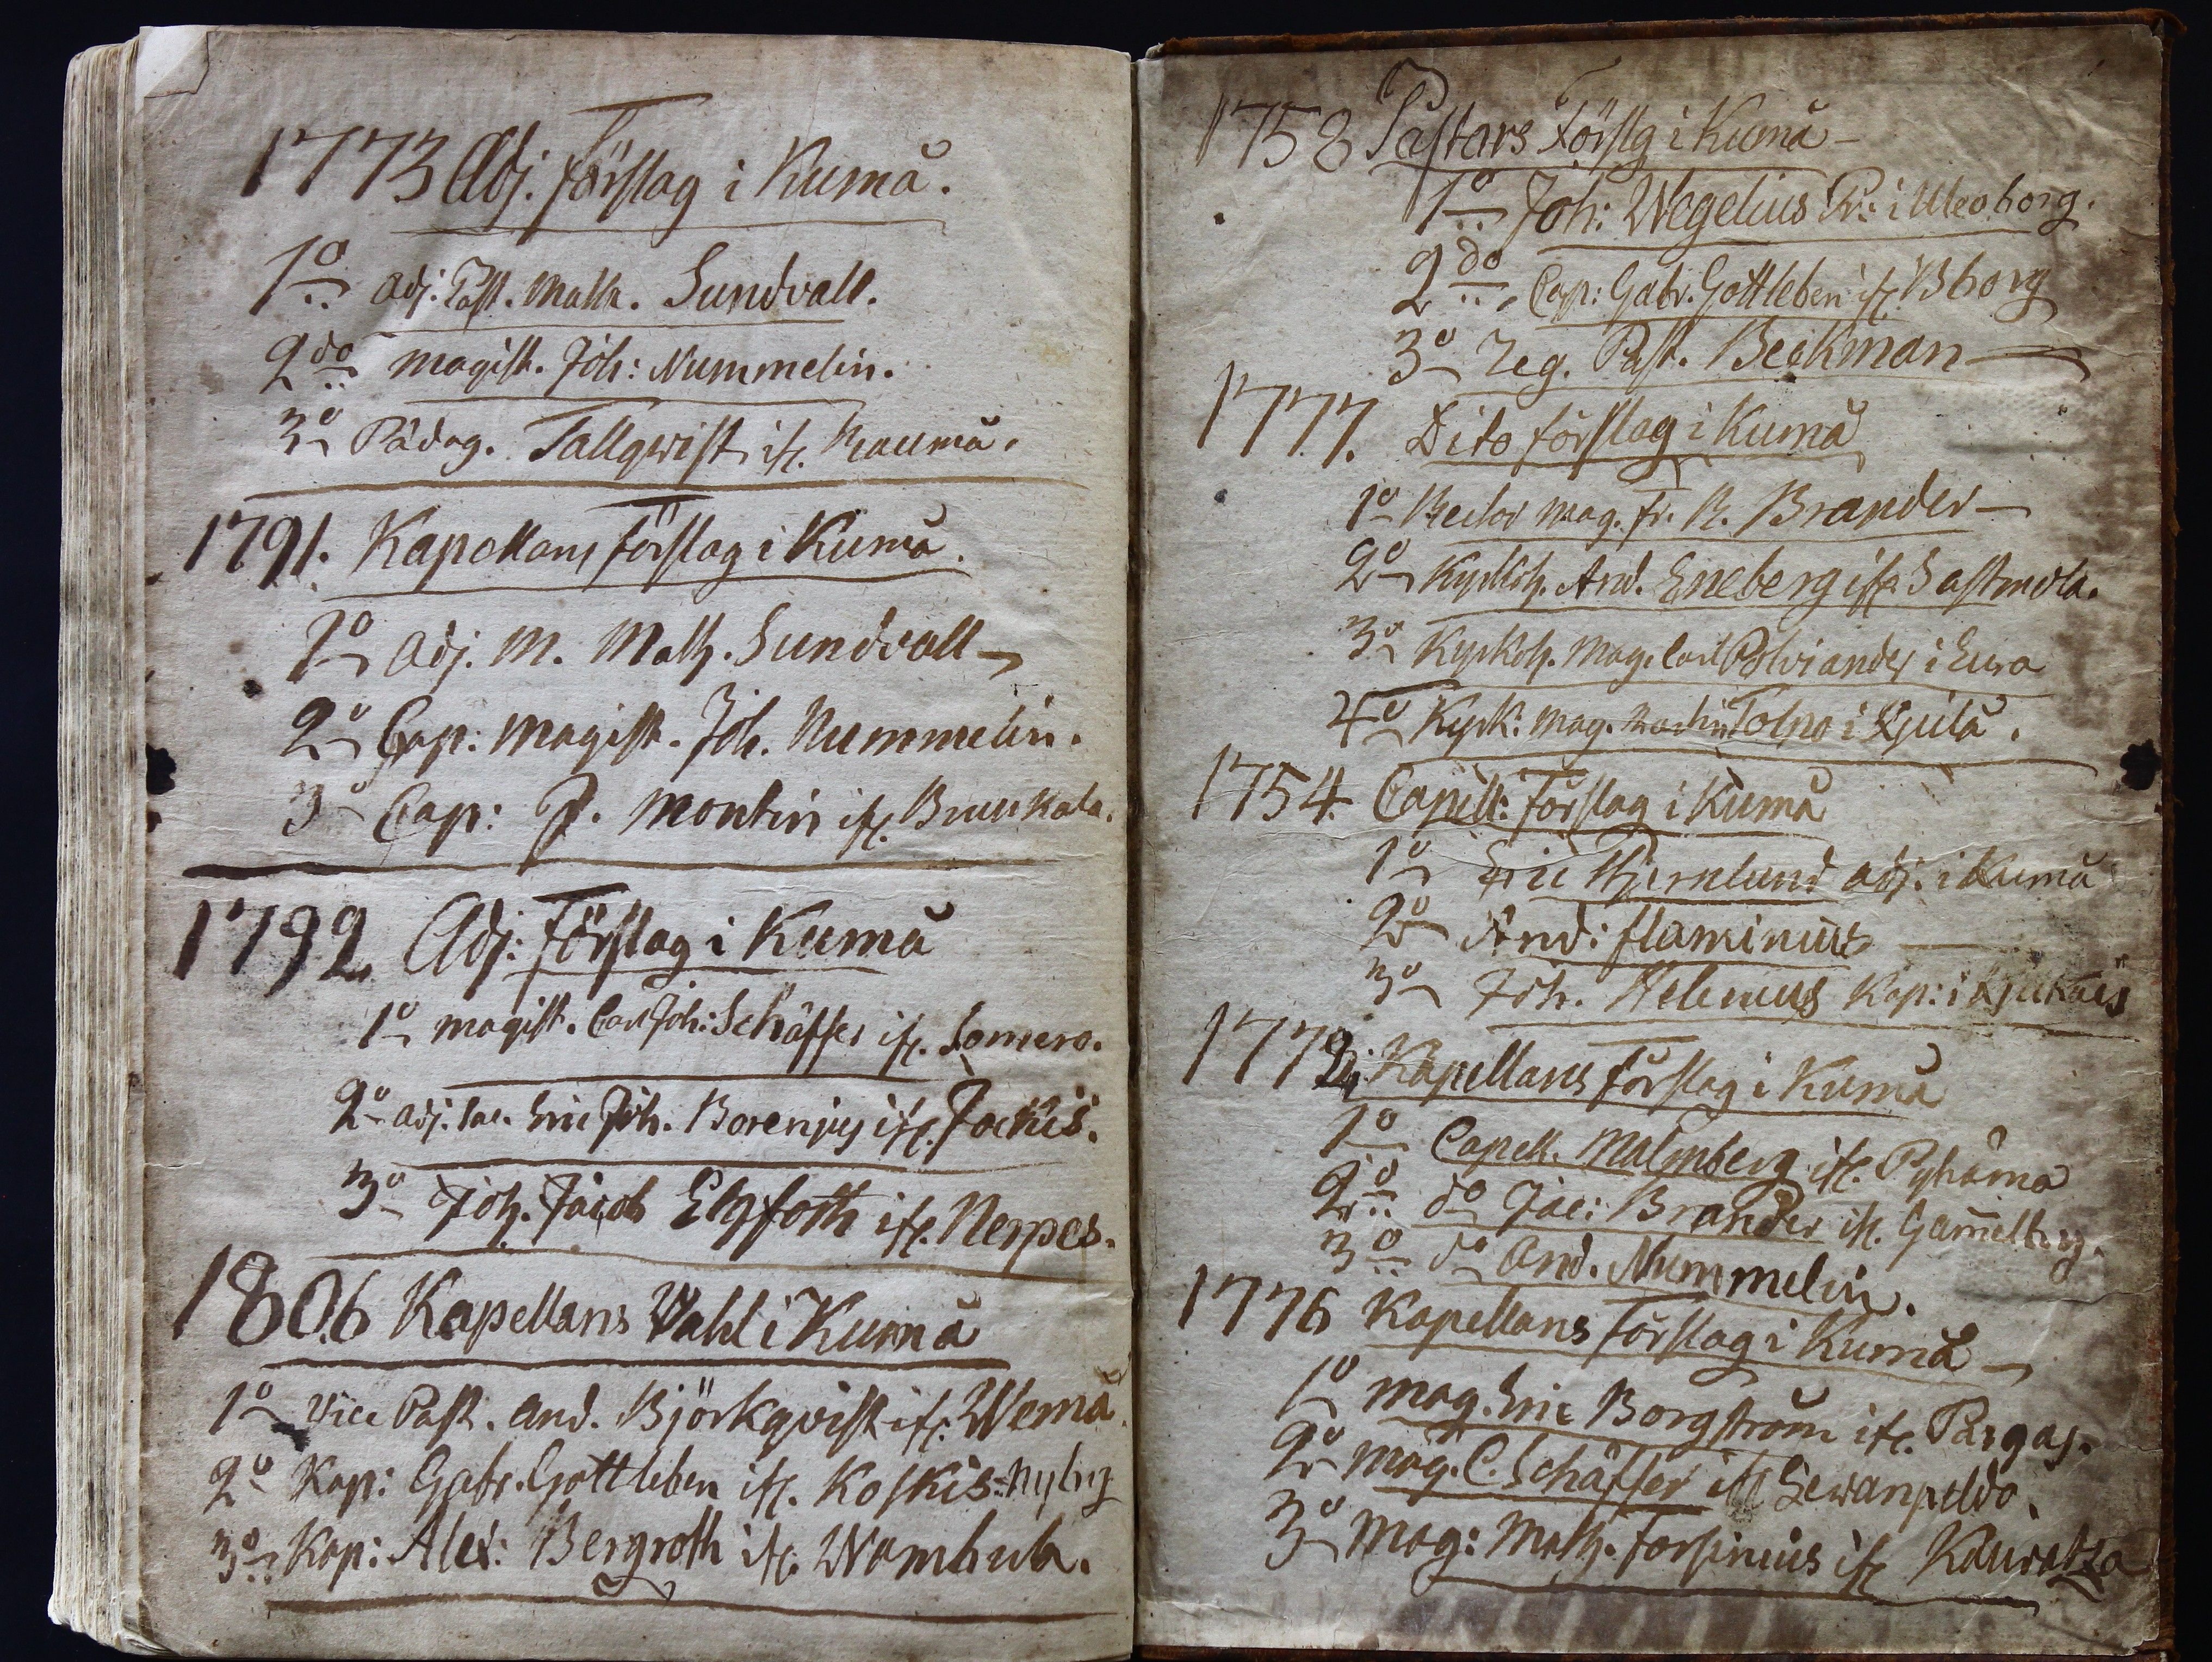 1773 Adj. förslag i Kumå.
1o adj: Past. Math. Sundvall.
2do magist. Joh: Nummelin.
3o Pädag. Tallqwist ifr. Raumå.
1791. Kapellans Förslag i Kumå.
1o adj. M. Math. Sundvall
2o Cap: magist. Joh. Nummelin.
3o Cap: J. Montin ifr.
1792 Adj: Förslag i Kumå
1o magist. Carl Joh: Schäffer ifr. Somero.
2o adj. Eric Joh. Borenius ifr. Jockis.
3o Joh. Jacob Elgfoth ifr. Nerpes.
1806 Kapellans Wahl i Kumå
1o Vice Past. And. Björkqvist ifr. Wemå.
2o Kap: Gabr. Gottleben ifr. Koskis:
3o Kap: Alex: Bergroth ifr. Wambula.
1758 Pastors Förslg i Kumå
1o Joh: Wegelius Pr: i Uleoborg.
2do Cap: Gabr. Gottleben ifr. Bborg
3o Reg. Past. Beckman
1777. Dito förslag i Kumå
1o Rector Mag. Fr. R. Brander
2o Kyrkoh. And. Eneberg ifr. Sastmola.
3o Kyrkoh. Mag. Carl Polviander i Eura
4o Kyrk: Mag. Martin Tolpo i Kjulå.
1754. Capell: Förslag i Kumå
1o Eric Stjernlund adj. i Kumå
2o And: flaminius
3o Joh. Helenius Kap: i Kjukais
1772 Kapellans Förslag i Kumå
1o Capell. Malmberg ifr. Pyhäma
2o do Jac: Brander ifr. Gam̄elby.
3o do And. Nummelin.
1776 Kapellans Förslag i Kumå
1o Mag. Eric Borgström ifr. Pargas.
2o Mag. C. Schäffer ifr Lewanpeldo.
3o Mag: Math. Forsinius ifr Kauvatza